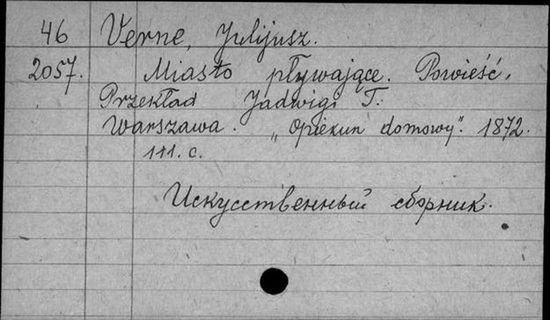 46 Verne, Julijusz.
2057. Miasto pływające. Powieść.
Przekład Jadwigi T.
Warszawa. „Opiekun domowy". 1872.
111. с.
Искусственный сборник.